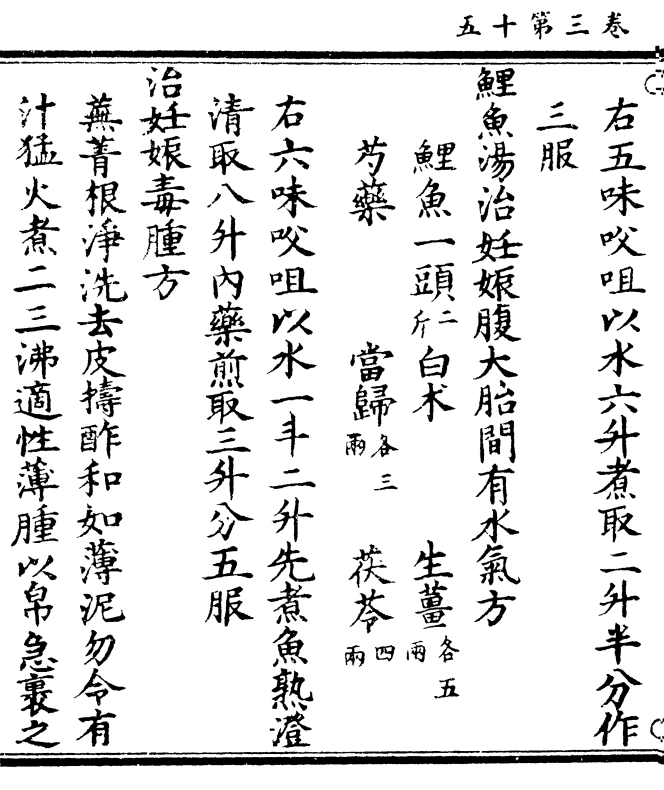 卷三第十五
右五味㕮咀以水六升煮取二升半分作
三服
鯉魚湯治妊娠腹大胎間有水氣方
鯉魚一頭二斤 白术 生薑各五兩
芍藥 當歸各三兩 茯苓四兩
右六味㕮咀以水一斗二升先煮魚熟澄
清取八升內藥煎取三升分五服
治妊娠毒腫方
蕪菁根淨洗去皮擣酢和如薄泥勿令有
汁猛火煮二三沸適性薄腫以帛急裹之